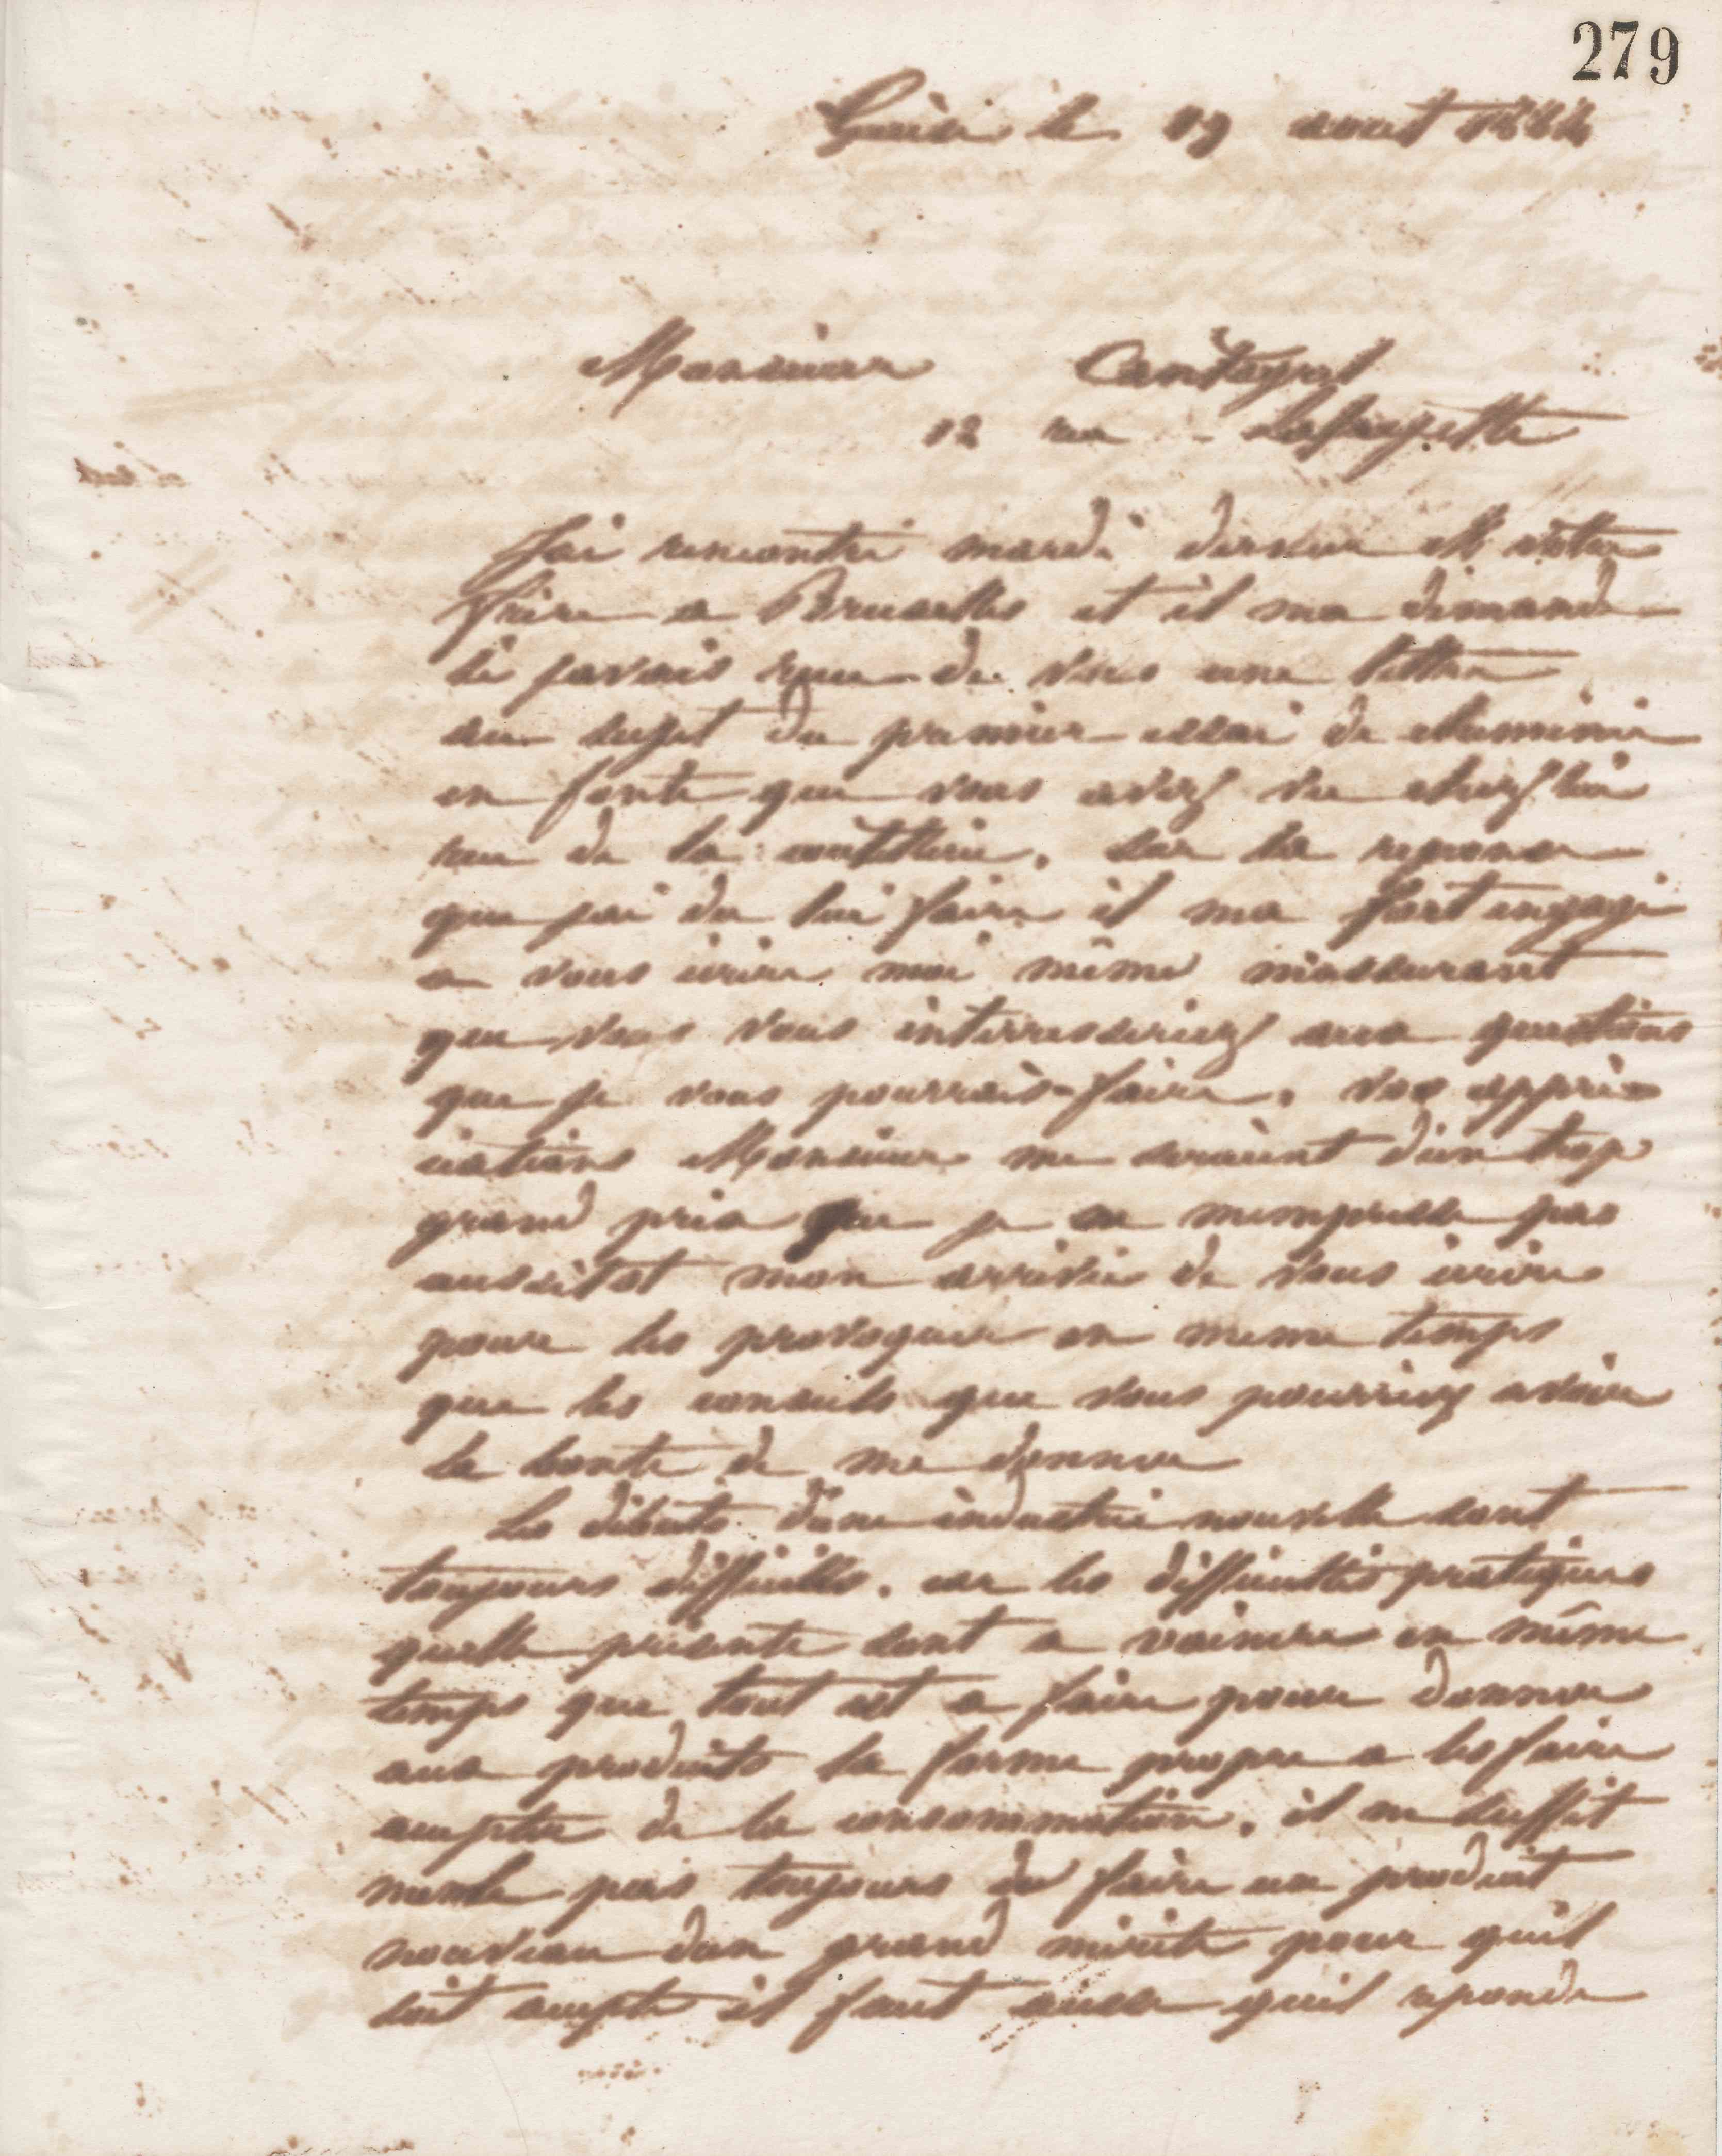 279
Guise le 19 aout
Monsieur Cantagrel
12 rue Lafayette
J'ai rencontré mardi dernier Mr votre
frère a Bruxelles et il ma demandé
si javais recu de vous une lettre
au sujet du premier essai de cheminée
en fonte que vous avez vu chez lui
rue de la coutellerie. Sur la reponse
que jai du lui faire il ma fort engagé
a vous écrire moi même m'assurant
que vous vous interresseriez aux questions
que je vous pourrais faire. Vos appré
ciations Monsieur me seraient d'un trop
grand prix que je ne mempresse pas
aussitot mon arrivée de vous écrire
pour les provoquer en meme temps
que les conseils que vous pourriez avoir
la bonté de me donner
Les débuts d'une industrie nouvelle sont
toujours difficilles. car les difficultés pratiques
quelle présente sont a vaincre en même
temps que tout est a faire pour donner
aux produits la forme propre a les faire
accepter de la consommation. il ne suffit
meme pas toujours de faire un produit
nouveau dun grand mérite pour quil
soit accepté il faut aussi quil reponde